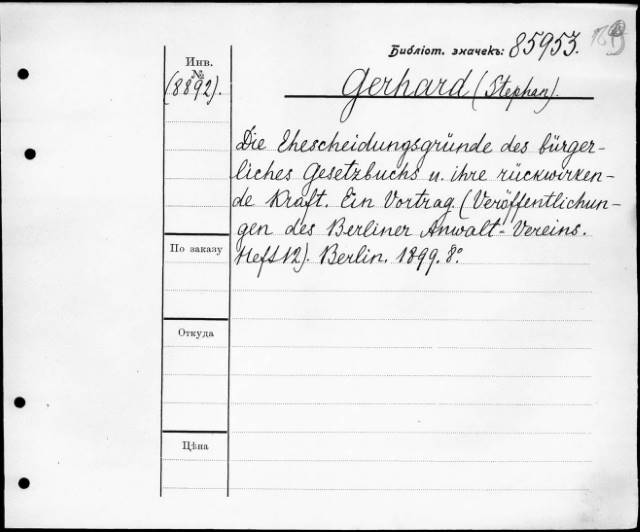 Библіот. значекъ: 85953.
Инв.
№
(8892).
Gerhard (Stephan).
Die Ehescheidungsgründe des bürger-
liches Gesetzbuchs u. ihre rückwirken-
de Kraft. Ein Vortrag. (Veröffentlichun-
gen des Berliner Anwalt-Vereins.
Heft 12). Berlin. 1899. 8°.
По заказу
Откуда
Цѣна